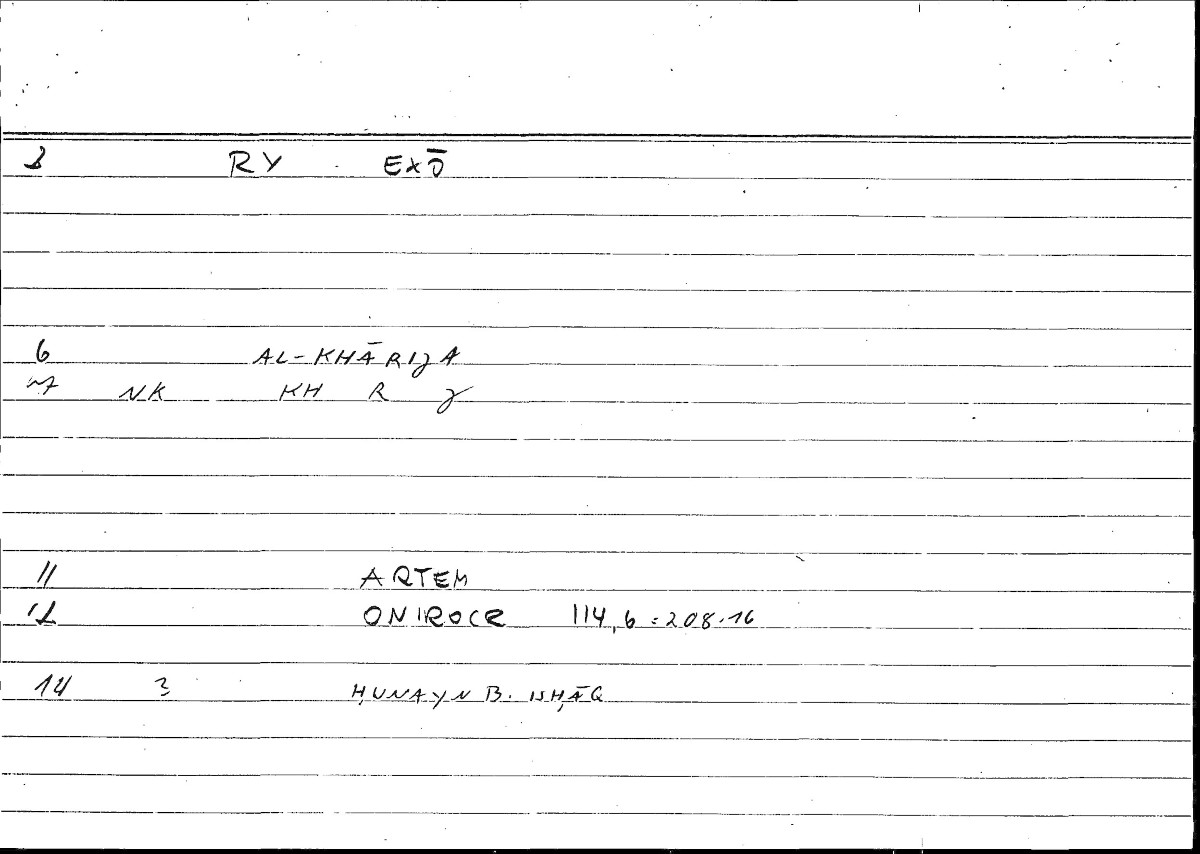 3 RY EXŌ
6 AL-KHĀRIJA
NK KH R J
11 ARTEM
12 ONIROCR 114,6 = 208.16
14 3 ḤUNAYN B. ISḤĀQ